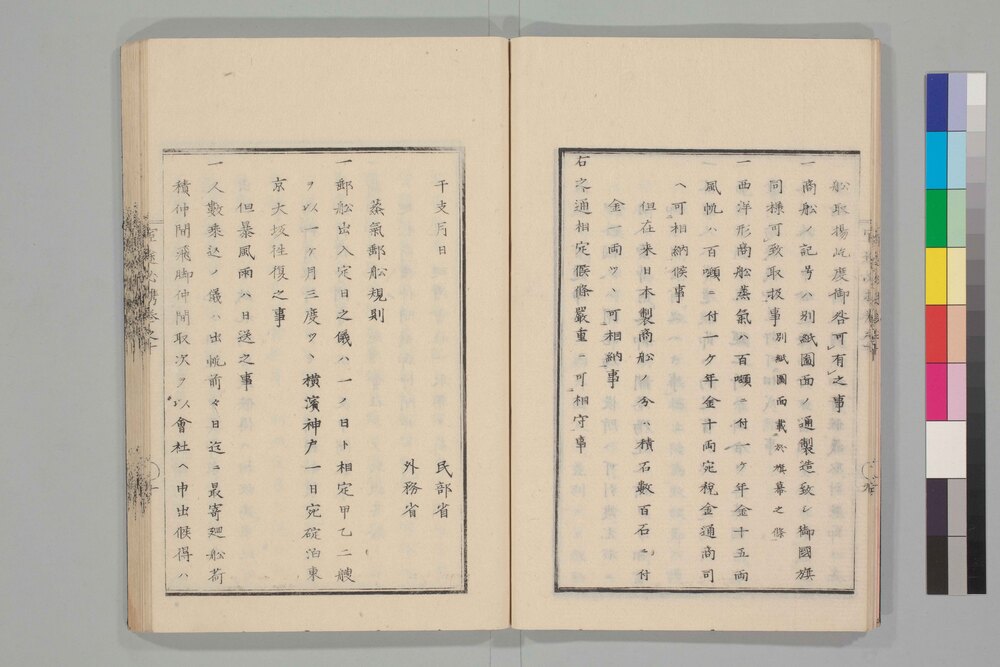 舩取揚屹度御咎可有之事
一商舩ノ記号ハ別紙圖面ノ通製造致シ御國旗
同様可致取扱事 別紙圖面載於旗幕之條
一西洋形商舩蒸氣ハ百噸ニ付一ケ年金十五両
風帆ハ百噸ニ付一ケ年金十両宛税金通商司
ヘ可相納候事
但在来日本製商舩ノ分ハ積石數百石ニ付
金一両ツヽ可相納事
右之通相定候條嚴重ニ可相守事
干支月日
民部省
外務省
蒸氣郵舩規則
一郵舩出入定日之儀ハ一ノ日ト相定甲乙二艘
ヲ以一ケ月三度ツヽ横濱神户一日宛碇泊東
京大坂徃復之事
但暴風雨ハ日送之事
一人數乗込ノ儀ハ出帆前々日迄ニ最寄廻舩荷
積仲間飛脚仲間取次ヲ以會社ヘ申出候得ハ